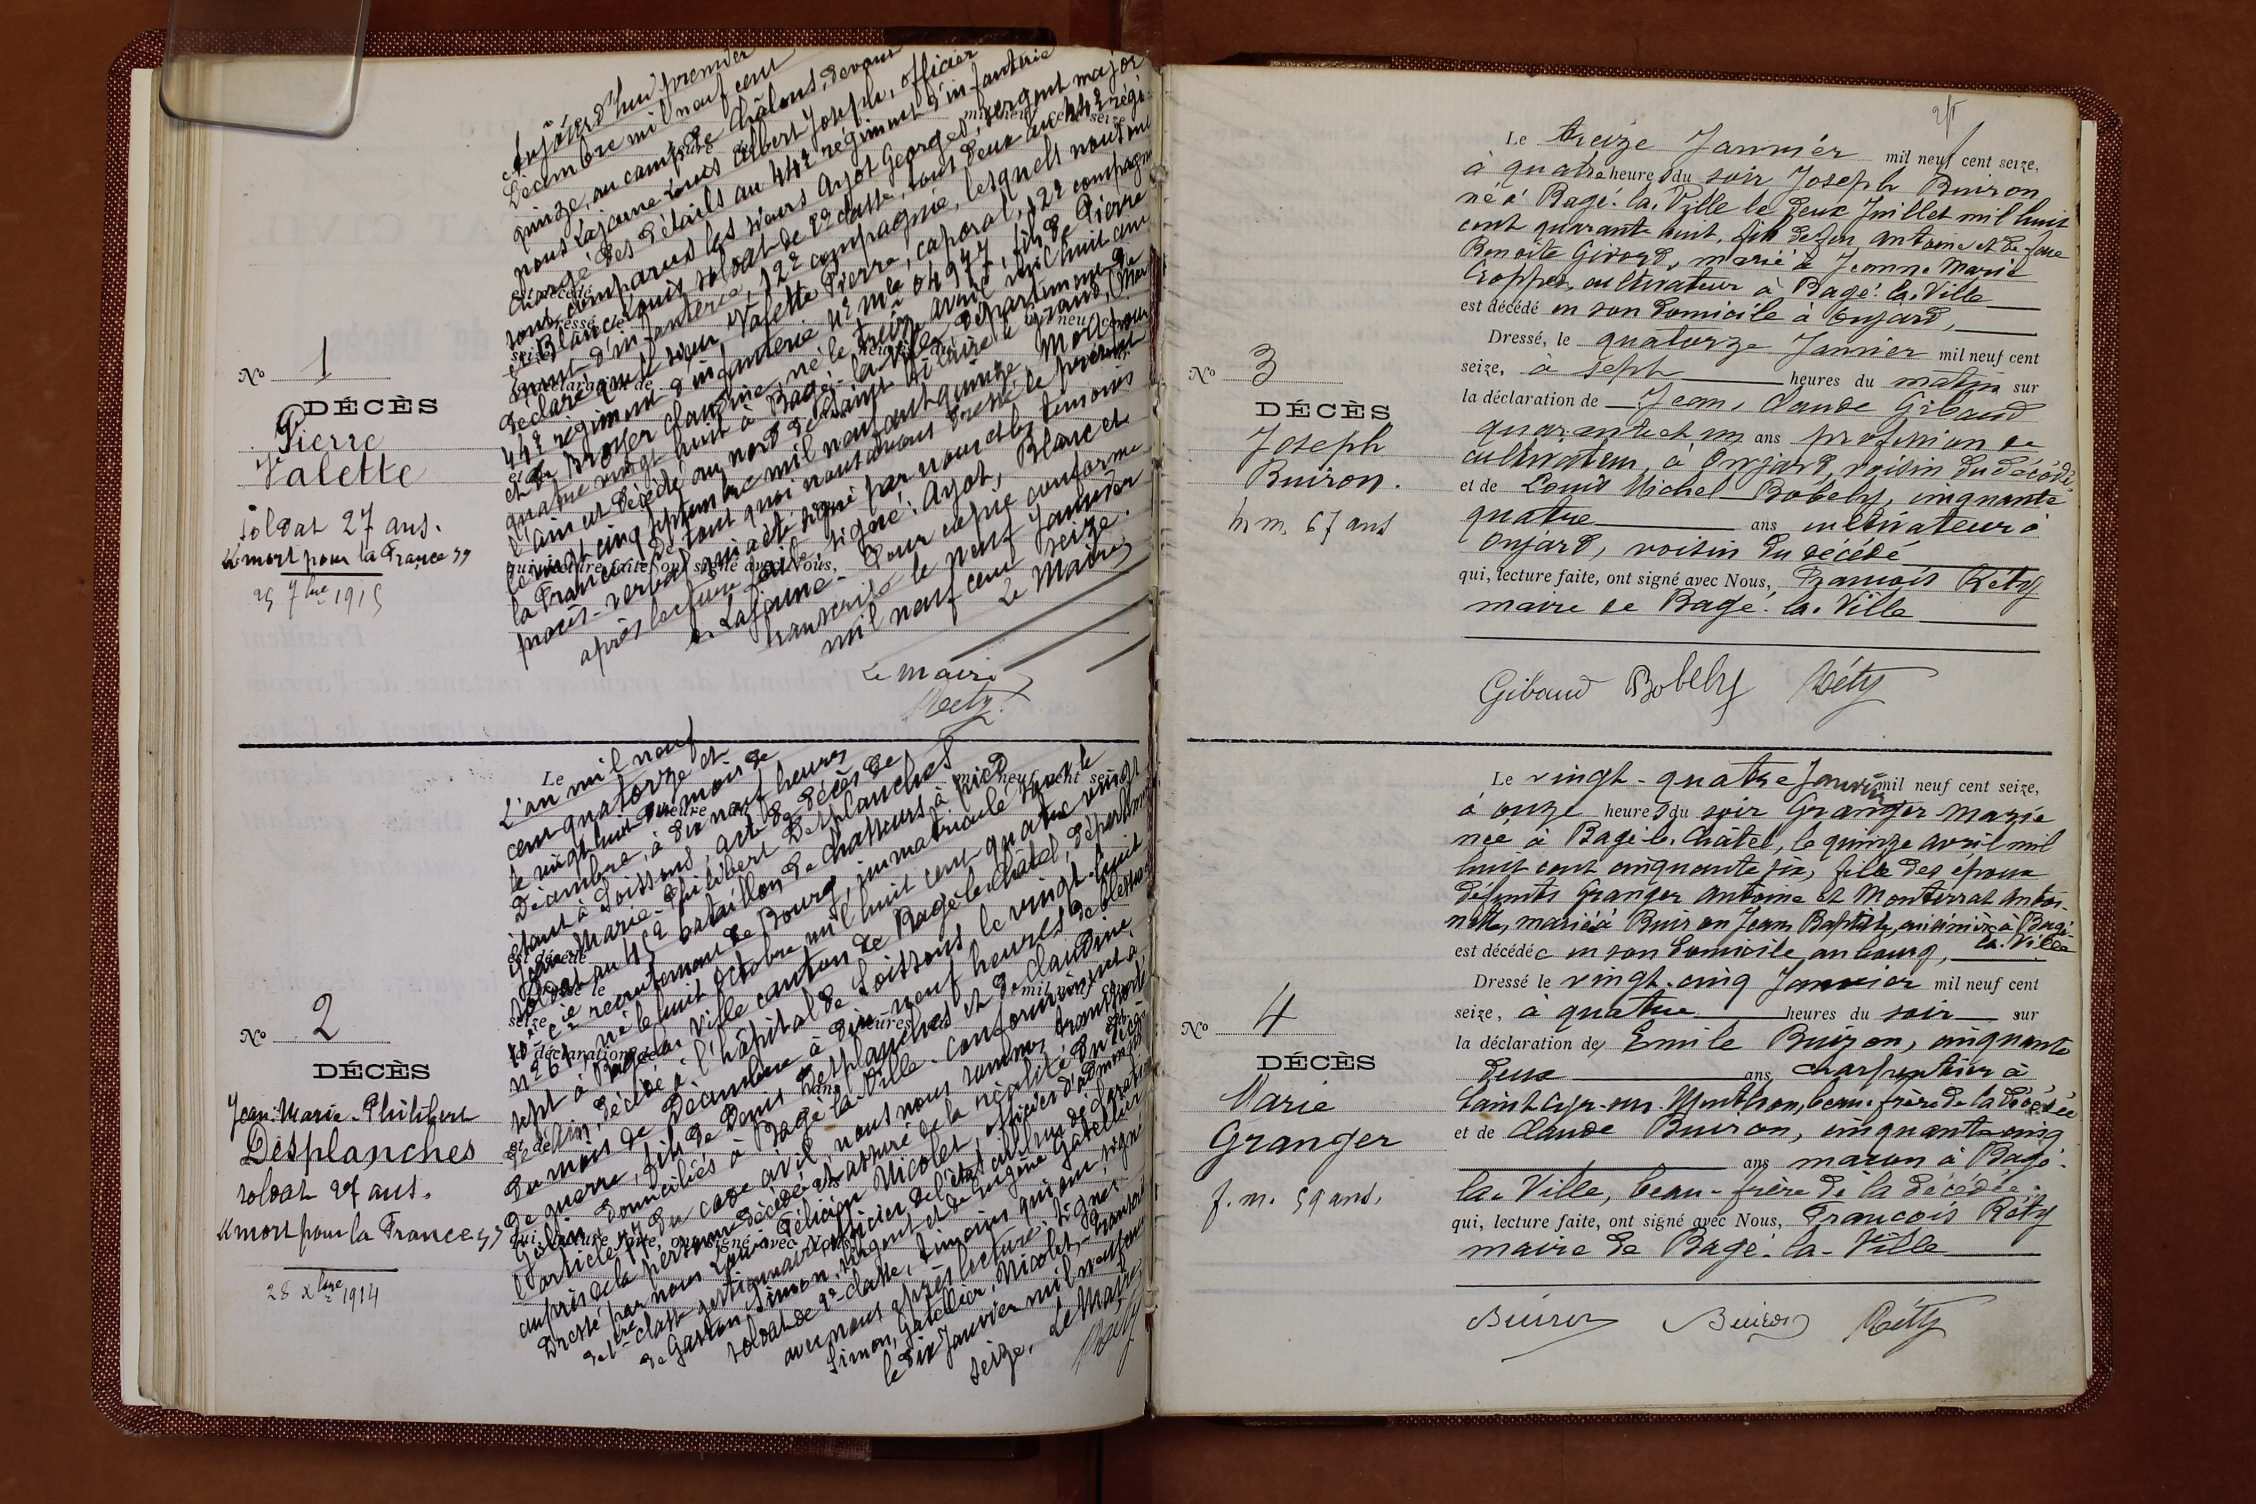 Nº 1
DÉCÈS
Pierre
Valette
soldat 27 ans.
"mort pour la France"
25 7bre 1915
Aujourd'hui premier
Décembre mil neuf cent
quinze, au camp de Châlons, devant
nous Lajeune Louis Albert Joseph, officier
chargé des détails au 44e régiment d'infanterie
sont comparus les sieurs Ayot Georges, sergent major
et Blanc Louis soldat de 2e classe, tous deux au 44e régi-
ment d'infanterie, 12e compagnie, lesquels nous ont
déclaré que le sieur Valette Pierre, caporal, 12e compagnie
44e régiment d'infanterie nº mle 04977, fils de Pierre
et de Broyer Claudine, né le treize avril mil huit cent
quatre vingt huit à Bagé-la-Ville département de
l'Ain est décédé au nord de Saint Hilaire le Grand, Marne
le vingt cinq septembre mil neuf cent quinze Mort pour
la France. De tout quoi nous avons dressé le présent
procès-verbal qui a été signé par nous et les témoins
après lecture faite, signé: Ayot, Blanc et
Lajeune - Pour copie conforme
transcrite le neuf Janvier
mil neuf cent seize.
Le Maire,
Le Maire
Réty
Nº 2
DÉCÈS
Jean-Marie-Philibert
Desplanches
soldat 27 ans.
"mort pour la France"
28 xbre 1914
L'an mil neuf
cent quatorze et
le vingt huit du mois de
Décembre, à dix neuf heures
étant à Soissons, acte de décès de
Jean Marie-Philibert Desplanches
soldat au 45e bataillon de chasseurs à pied
10e Cie recrutement de Bourg, immatriculé sous le
nº 61, né le huit Octobre mil huit cent quatre vingt
sept à Bagé la Ville canton de Bagé-le-Châtel, département
de l'Ain, décédé à l'hôpital de Soissons le vingt-huit
du mois de Décembre à dix-neuf heures de blessures
de guerre, fils de Denis Desplanches et de Claudine
domiciliés à Bagé la Ville. Conformément à
l'article 77 du code civil, nous nous sommes transporté
auprès de la personne décédée et assuré de la réalité du décès
Dressé par nous Louis Félicien Nicolet, officier d'administration
de 1ère classe gestionnaire officier de l'état civil sur déclaration
de Gaston Simon, sergent et de Eugène Gatellier
soldat de 2e classe, témoins qui ont signé
avec nous après lecture, signé:
Simon, Gatellier, Nicolet, - Transcrit
le dix Janvier mil neuf cent
seize. Le Maire,
Réty
Le treize Janvier mil neuf cent seize,
à quatre heures du soir Joseph Buiron
né à Bagé-la-Ville le deux Juillet mil huit
cent quarante huit, fils de feu Antoine et de feue
Benoite Girard, marié à Jeanne Marie
Croppet, cultivateur à Bagé-la-Ville
est décédé en son domicile à Onjard,
Dressé, le quatorze Janvier mil neuf cent
seize, à sept heures du matin sur
la déclaration de Jean, Claude Gibaud
quarante et un ans profession de
cultivateur, à Onjard, voisin du décédé,
et de Louis Michel Bobely, cinquante
quatre ans cultivateur à
Onjard, voisin du décédé
qui, lecture faite, ont signé avec Nous, François Réty
maire de Bagé-la-Ville
Gibaud Bobely Réty
Nº 3
DÉCÈS
Joseph
Buiron.
h. m. 67 ans
Le vingt-quatre Janvier mil neuf cent seize,
à onze heures du soir Granger Marie
née à Bagé-le-Châtel, le quinze avril mil
huit cent cinquante six, fille des époux
défunts Granger Antoine et Monterrat Antoi-
nette, mariée à Buiron Jean Baptiste, cuisinière à Bagé-
la-Ville
est décédée en son domicile, au bourg,
Dressé le vingt-cinq Janvier mil neuf cent
seize, à quatre heures du soir sur
la déclaration de Emile Buiron, cinquante
deux ans, charpentier à
Saint Cyr-sur-Menthon, beau-frère de la décédée
et de Claude Buiron, cinquante-cinq
ans maçon à Bagé-
la-Ville, beau-frère de la décédée.
qui, lecture faite, ont signé avec Nous, François Réty
maire de Bagé-la-Ville
Buiron Buiron Réty
Nº 4
DÉCÈS
Marie
Granger
f. m. 59 ans.